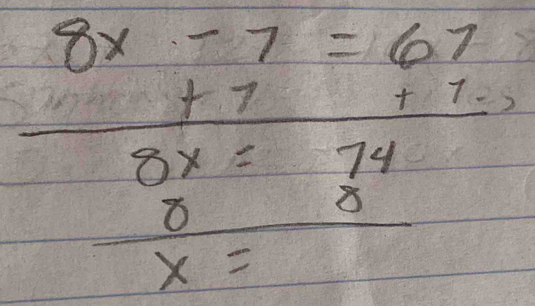 8x - 7 = 67
+ 7 + 7
8x = 74
8 8
x =